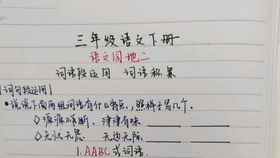 三年级语文下册
语文园地二
词语段运用 词语积累
词句段运用
·说说下面两组词语有什么特点，照样子写几个。
◇源源不断、津津有味
◇无忧无虑、无边无际
1.AABC式词语。